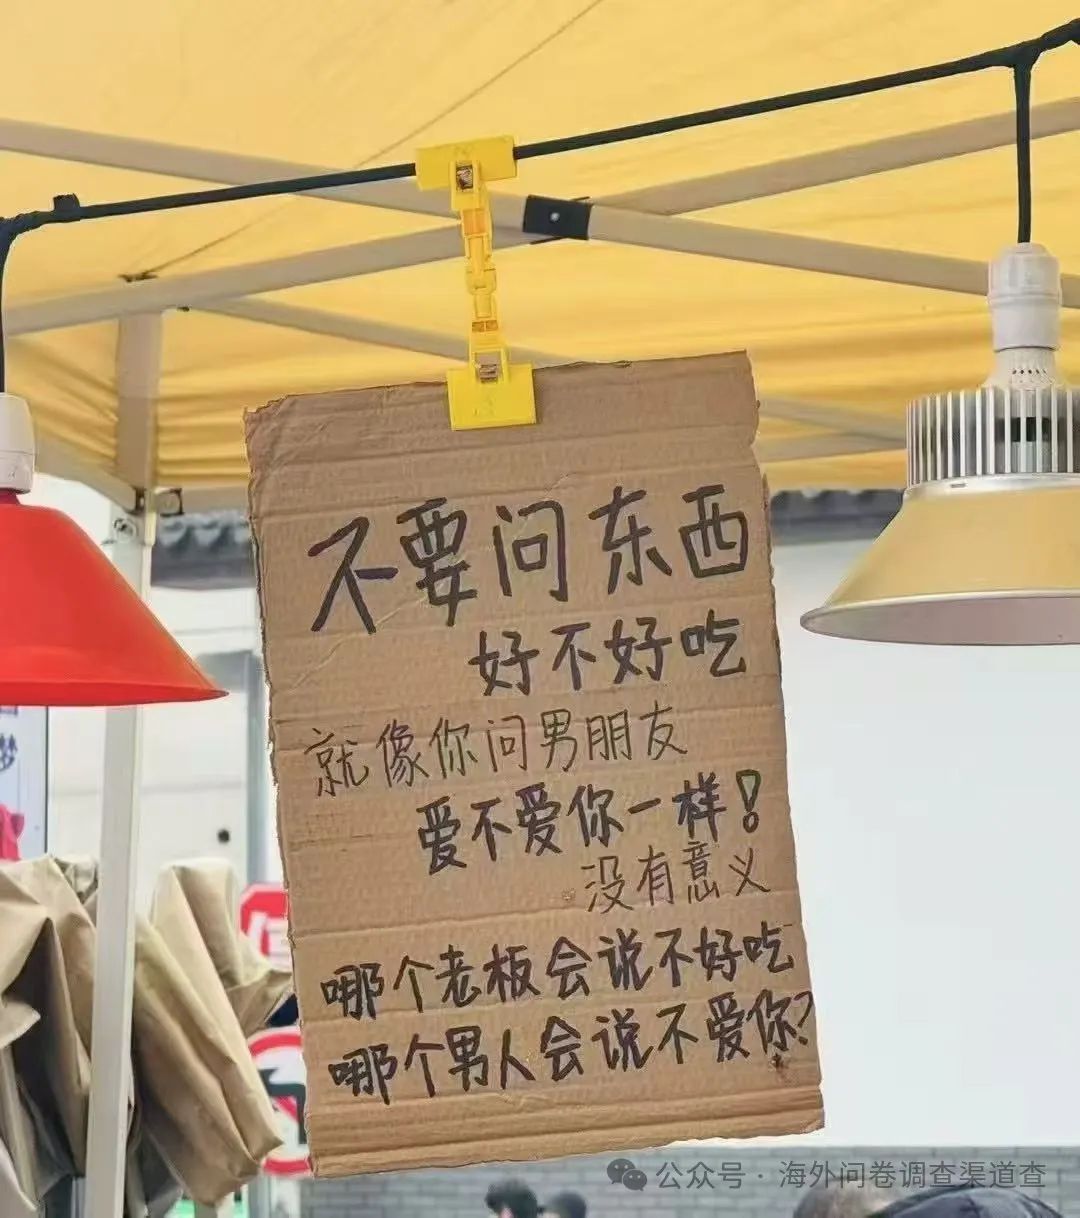 不要问东西
好不好吃
就像你问男朋友
爱不爱你一样！
没有意义
哪个老板会说不好吃
哪个男人会说不爱你？
公众号·海外问卷调查渠道查